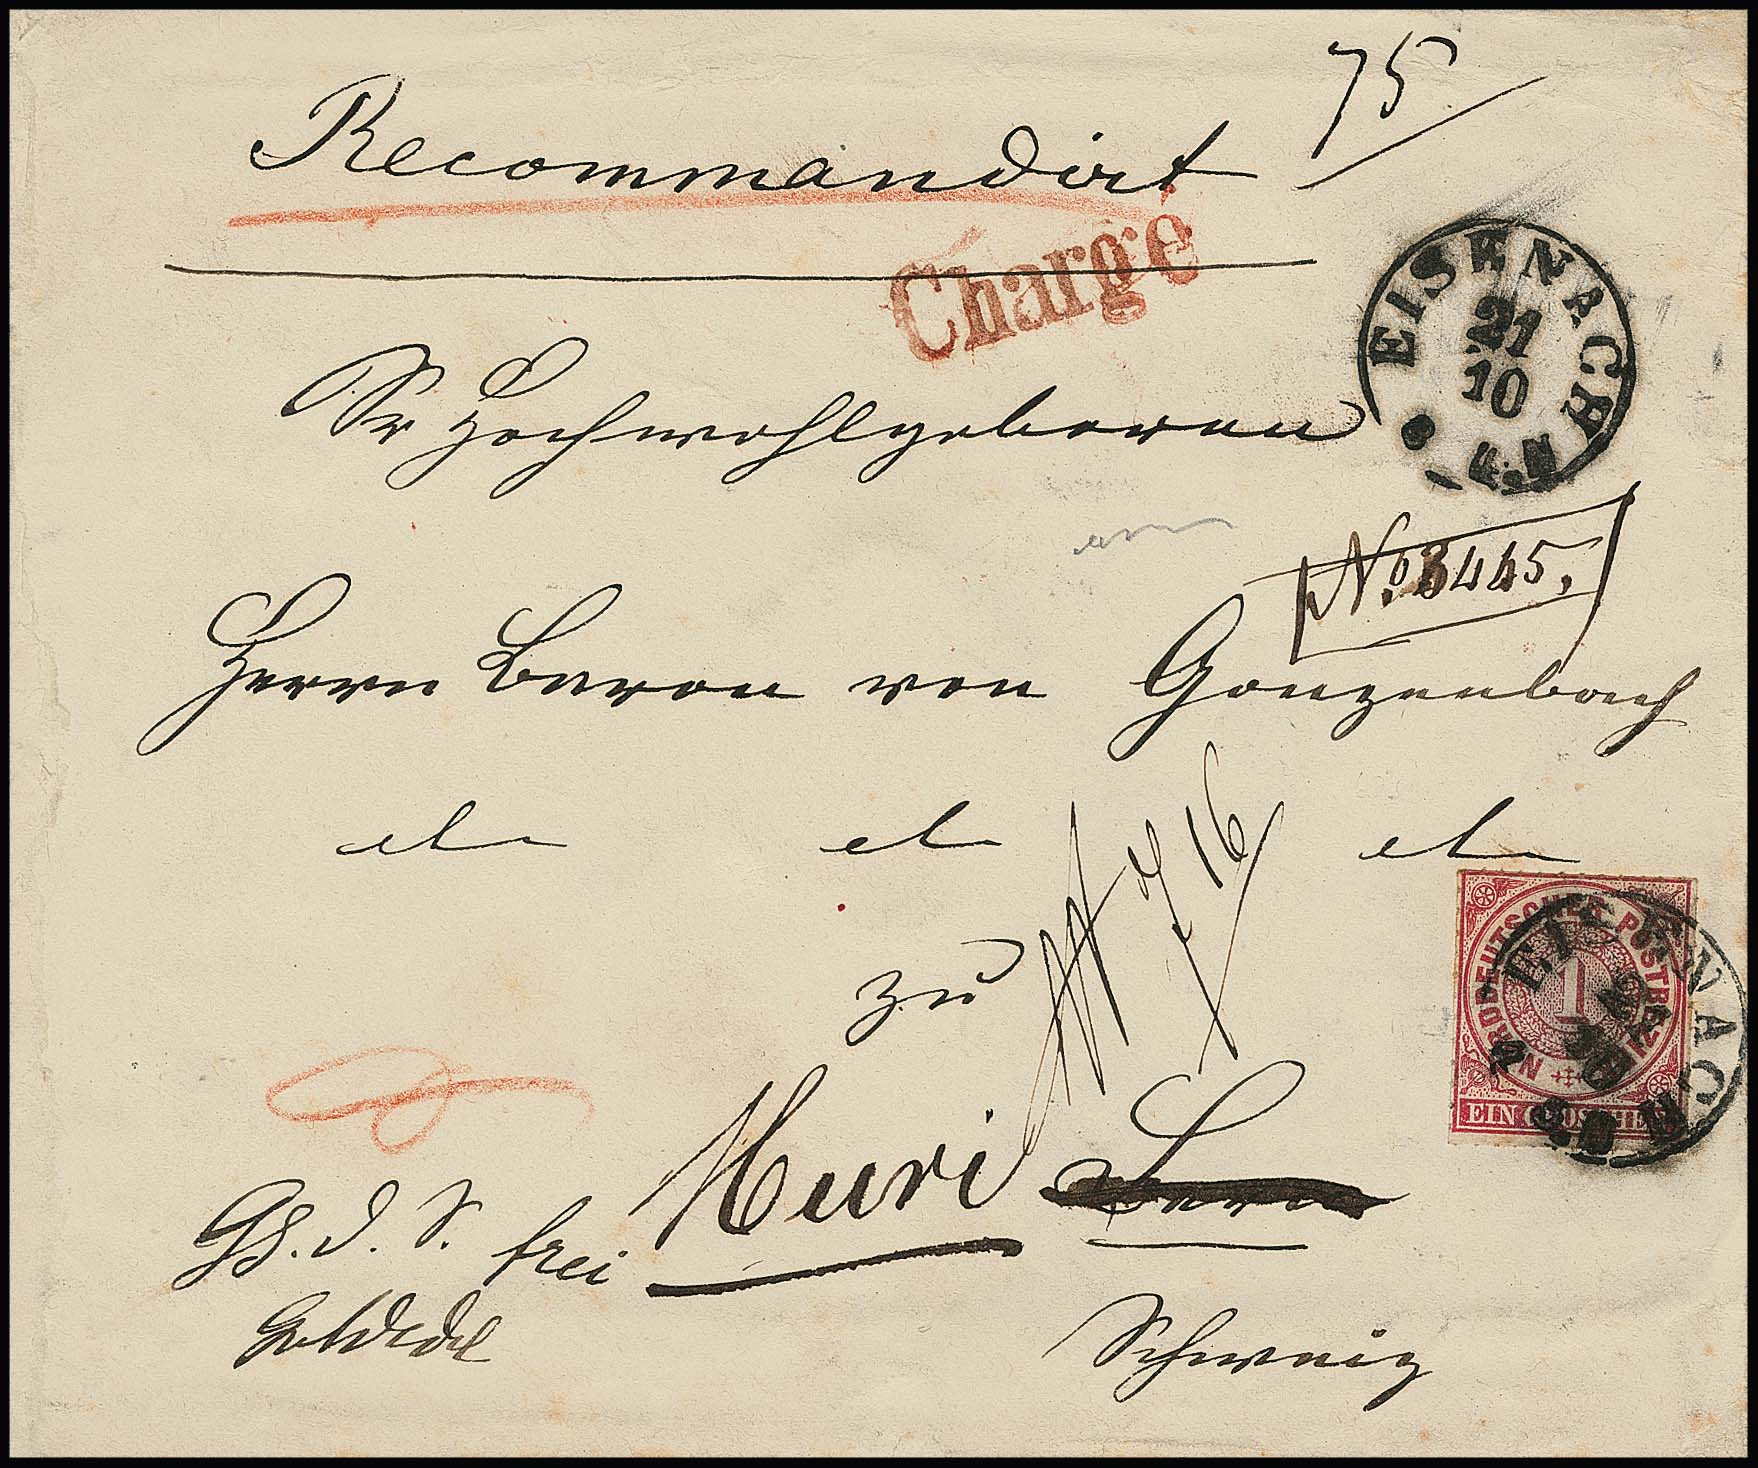 75
Recommandirt
Chargé
EISENACH
21
10
4-N
Sr Hochwohlgeboren
No. 3445.
Herrn Baron von Gonzenbach
16
zu
NORDDEUTSCHER POSTBEZIRK
1
EIN GROSCHEN
EISENACH
21
10
Muri Bern
frei
Schweiz